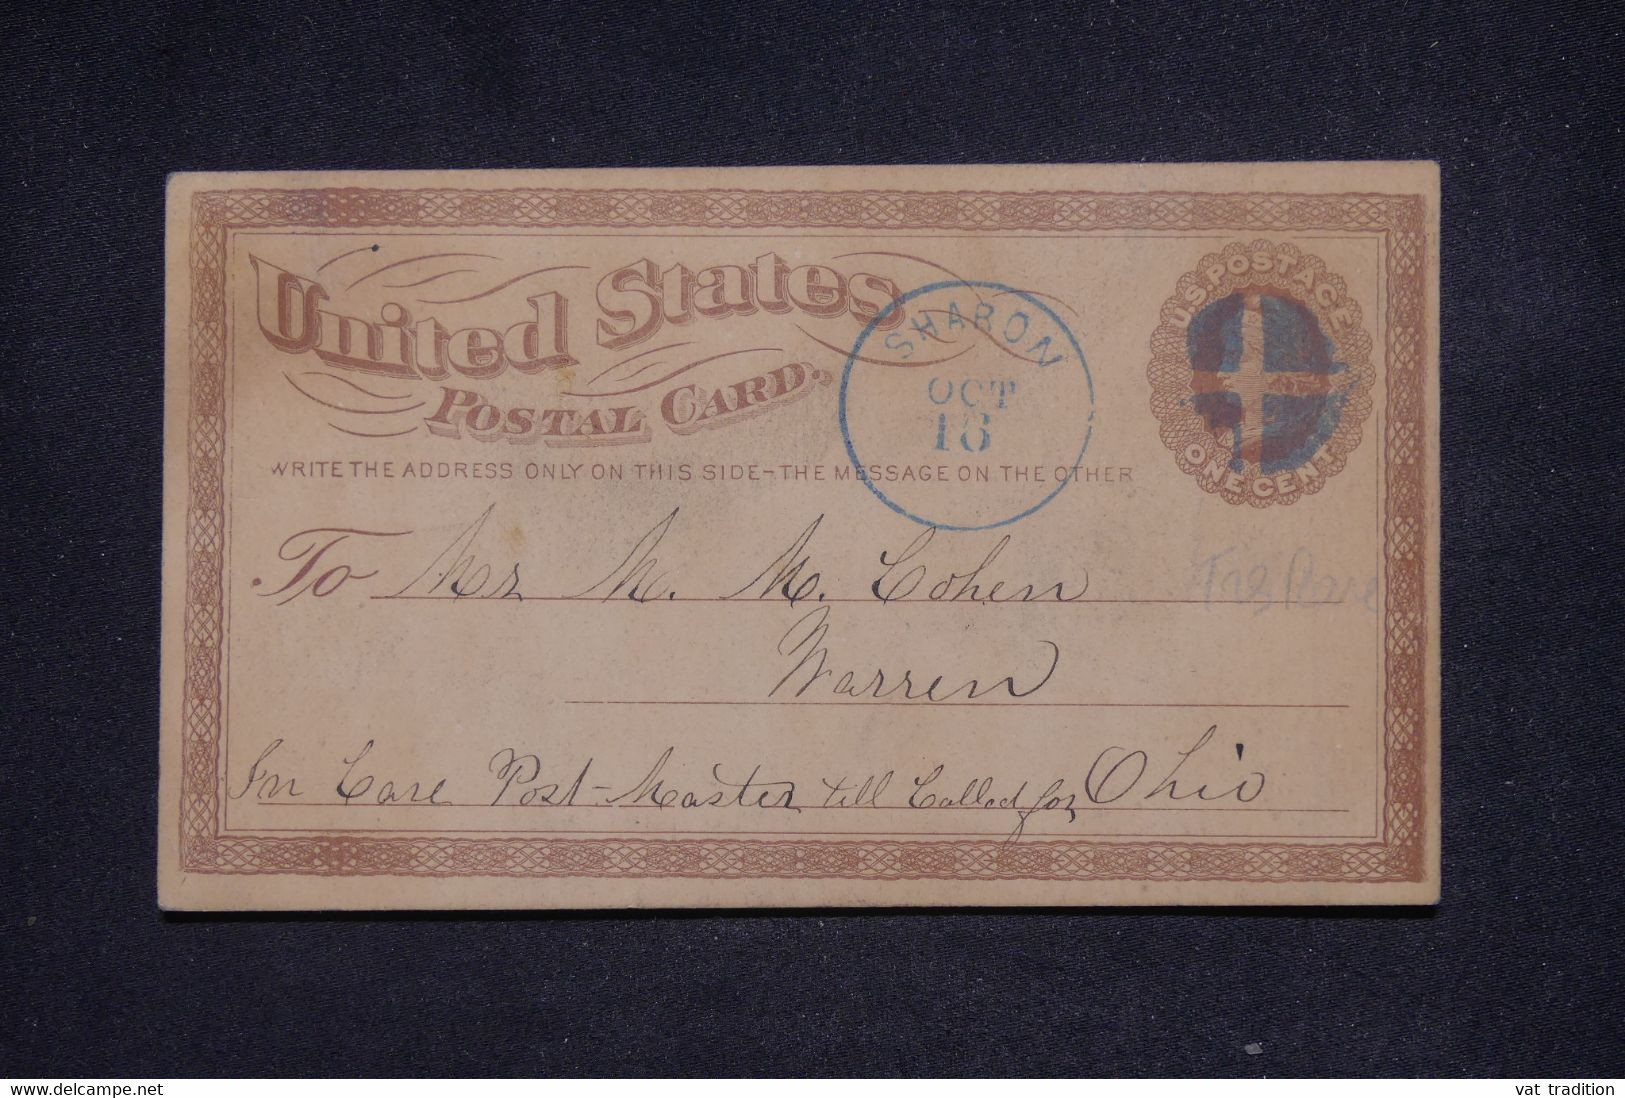 United States
POSTAL CARD.
U.S. POSTAGE
ONE CENT
SHARON
OCT
16
WRITE THE ADDRESS ONLY ON THIS SIDE-THE MESSAGE ON THE OTHER
To Mr M. M. Cohen
Warren
In Care Post-Master till Called for Ohio
delcampe.net
vat tradition